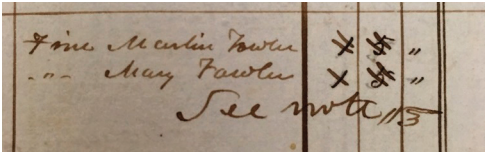 Fine Martin Fowler X X "
" " Mary Fowler X X "
See note